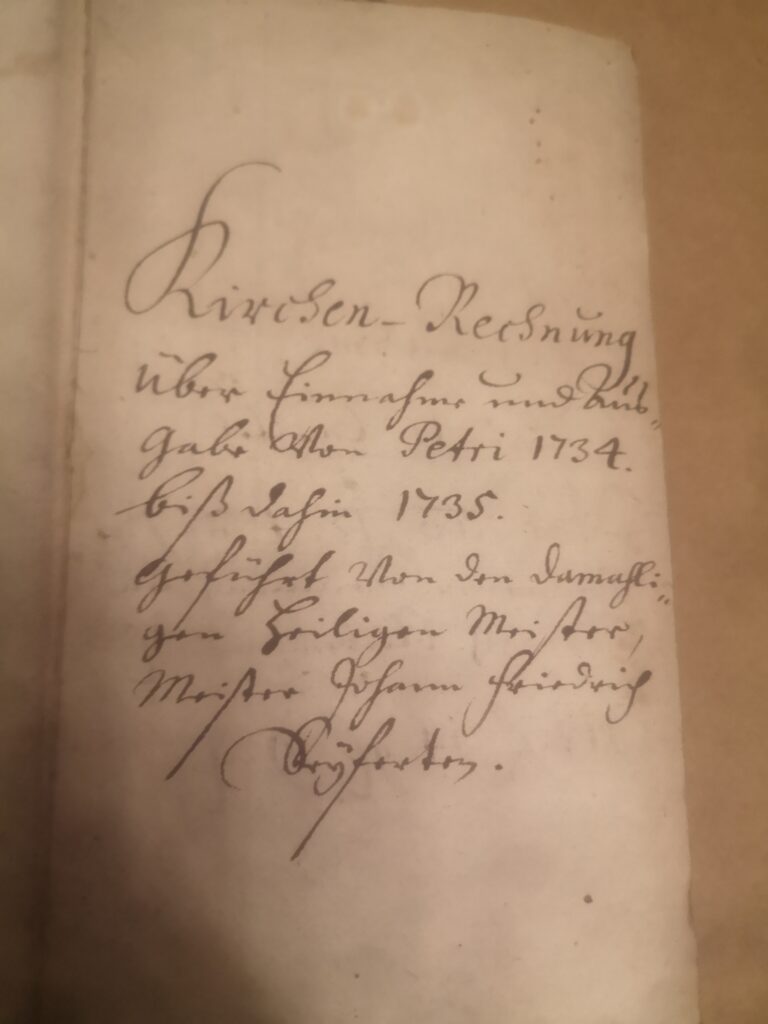 Kirchen-Rechnung
über Einnahme und Aus-
gabe Von Petri 1734.
biß dahin 1735.
geführt Von den damahli-
gen Heiligen Meister,
Meister Johann Friedrich
Seÿferten.